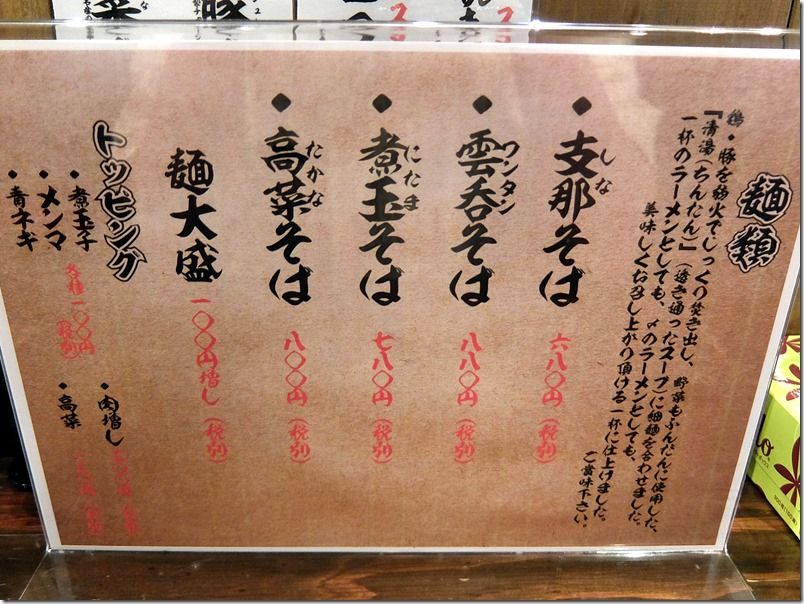 麺類
鶏・豚を弱火でじっくり焚き出し、野菜もふんだんに使用した、
『清湯(ちんたん)』(透き通ったスープ)に細麺を合わせました。
一杯のラーメンとしても、〆のラーメンとしても、
美味しくお召し上がり頂ける一杯に仕上げました。
ご賞味下さい。
・支那そば 六八〇円(税別)
しな
・雲呑そば 八八〇円(税別)
ワンタン
・煮玉そば 七八〇円(税別)
にたま
・高菜そば 八〇〇円(税別)
たかな
麺大盛 一〇〇円増し(税別)
トッピング
・煮玉子
・メンマ
・青ネギ
各種一〇〇円(税別)
・肉増し
・高菜